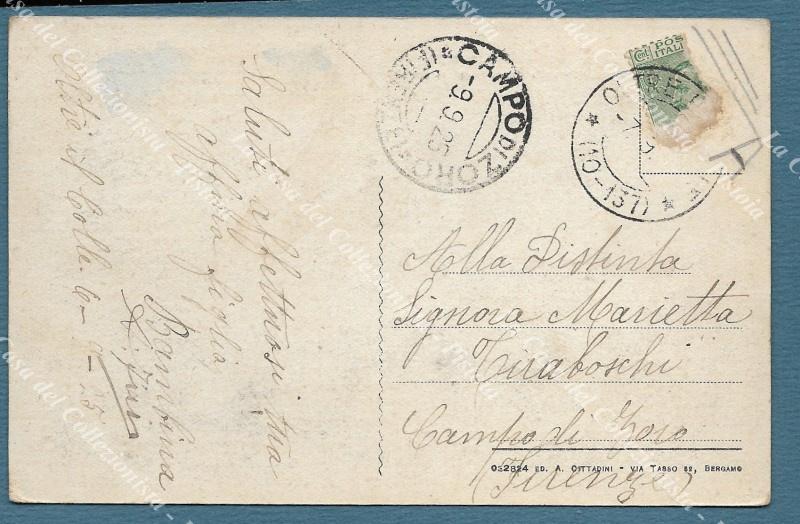 Saluti affettuosi tua
affma figlia
Bambina
Oltre il Colle 6-9-25
CAMPO DI ZORO
-9.9.25
OLTRE IL
(10-137)
Cent POS
ITALI
A
Alla Distinta
Signora Marietta
Tiraboschi
Campo di Zoro
(Firenze)
032824 ED. A. CITTADINI - VIA TASSO 82, BERGAMO
La Casa del Collezionista - Pistoia